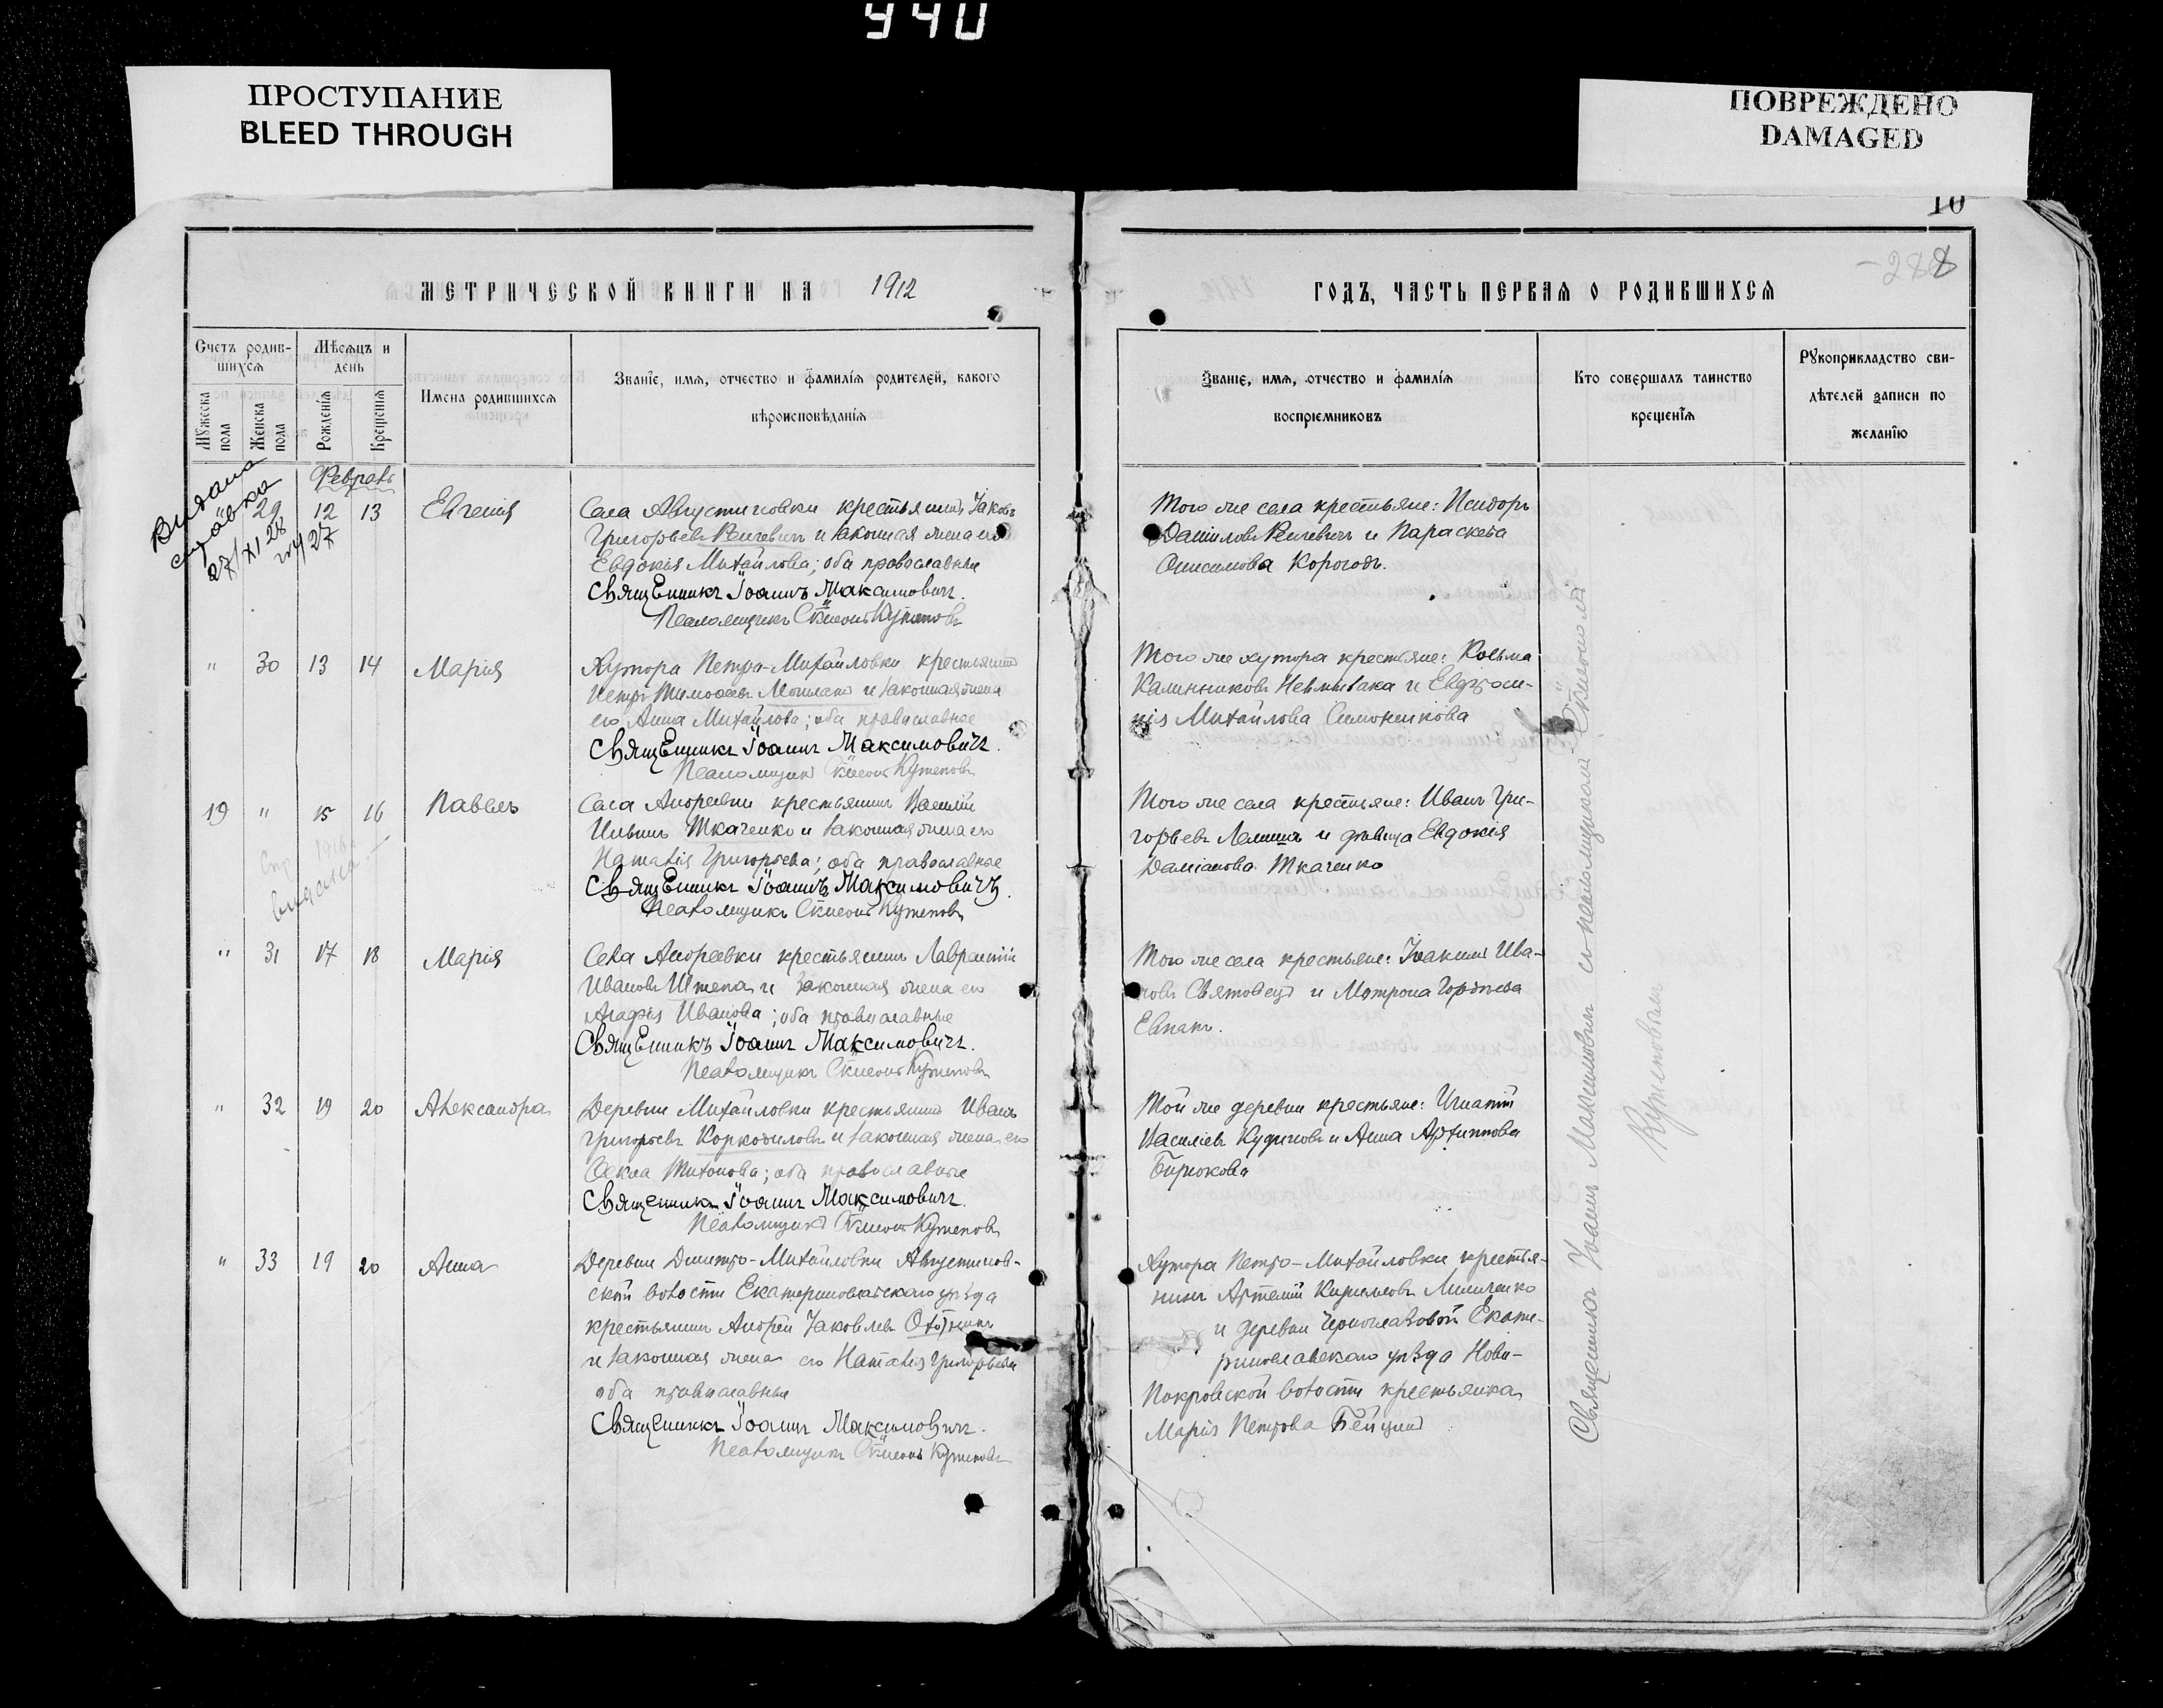 940
ПРОСТУПАНИЕ
BLEED THROUGH
ПОВРЕЖДЕНО
DAMAGED
10
288
МЕТРИЧЕСКОЙ КНИГИ НА 1912
ГОДЪ, ЧАСТЬ ПЕРВАЯ О РОДИВШИХСЯ
Счетъ родив-
шихся
Мужеска
пола
Женска
пола
Мѣсяцъ и
день
Рожденія
Крещенія
Имена родившихся
Званіе, имя, отчество и фамилія родителей, какого
вѣроисповѣданія
Званіе, имя, отчество и фамилія
воспріемниковъ
Кто совершалъ таинство
крещенія
Рукоприкладство сви-
дѣтелей записи по
желанію
Видана
справка
27/XI 28
Февраль
29 12 13 Евгенія
Села Августиновки крестьянинъ Іаковъ
Григорьевъ и законная жена его
Евдокія Михайлова; оба православные
Священникъ Іоаннъ Максимовичъ.
Псаломщикъ Стефанъ Кутеповъ
Того же села крестьяне: Исидоръ
Даниловъ и Параскева
Онисимова Корогодъ.
" 30 13 14 Марія
Хутора Петро-Михайловки крестьянинъ
Петръ Тимофеевъ и законная жена
его Анна Михайлова; оба православные
Священникъ Іоаннъ Максимовичъ.
Псаломщикъ Кутеповъ
Того же хутора крестьяне: Косьма
Калинниковъ и Евфроси-
нія Михайлова Симоненкова
19 " 15 16 Павелъ
Села Андреевки крестьянинъ Василій
Ткаченко и законная жена его
Наталія Григорьева; оба православные
Священникъ Іоаннъ Максимовичъ.
Псаломщикъ Кутеповъ
видана
Того же села крестьяне: Иванъ Гри-
горьевъ и дѣвица Евдокія
Даміанова Ткаченко
" 31 17 18 Марія
Села Андреевки крестьянинъ Лаврентій
Ивановъ Штепа и законная жена его
Агафія Иванова; оба православные
Священникъ Іоаннъ Максимовичъ.
Псаломщикъ Кутеповъ
Того же села крестьяне: Іоакимъ Ива-
новъ и Мотрона Гордѣева
" 32 19 20 Александра
Деревни Михайловки крестьянинъ Иванъ
Григорьевъ Коркодиловъ и законная жена его
Фекла Тихонова; оба православные
Священникъ Іоаннъ Максимовичъ.
Псаломщикъ Кутеповъ
Той же деревни крестьяне: Игнатій
Василіевъ и Анна Архиппова
Бирюкова
" 33 19 20 Анна
Деревни Димитро-Михайловки Августинов-
ской волости Екатеринославскаго уѣзда
крестьянинъ Андрей Іаковлевъ
и законная жена его Наталія Григорьева
оба православные
Священникъ Іоаннъ Максимовичъ.
Псаломщикъ Кутеповъ
Хутора Петро-Михайловки крестья-
нинъ Артемій Кирилловъ
и деревни Екате-
ринославскаго уѣзда Ново-
Покровской волости крестьянка
Марія Петрова
Священникъ Іоаннъ Максимовичъ съ псаломщикомъ
Кутеповымъ